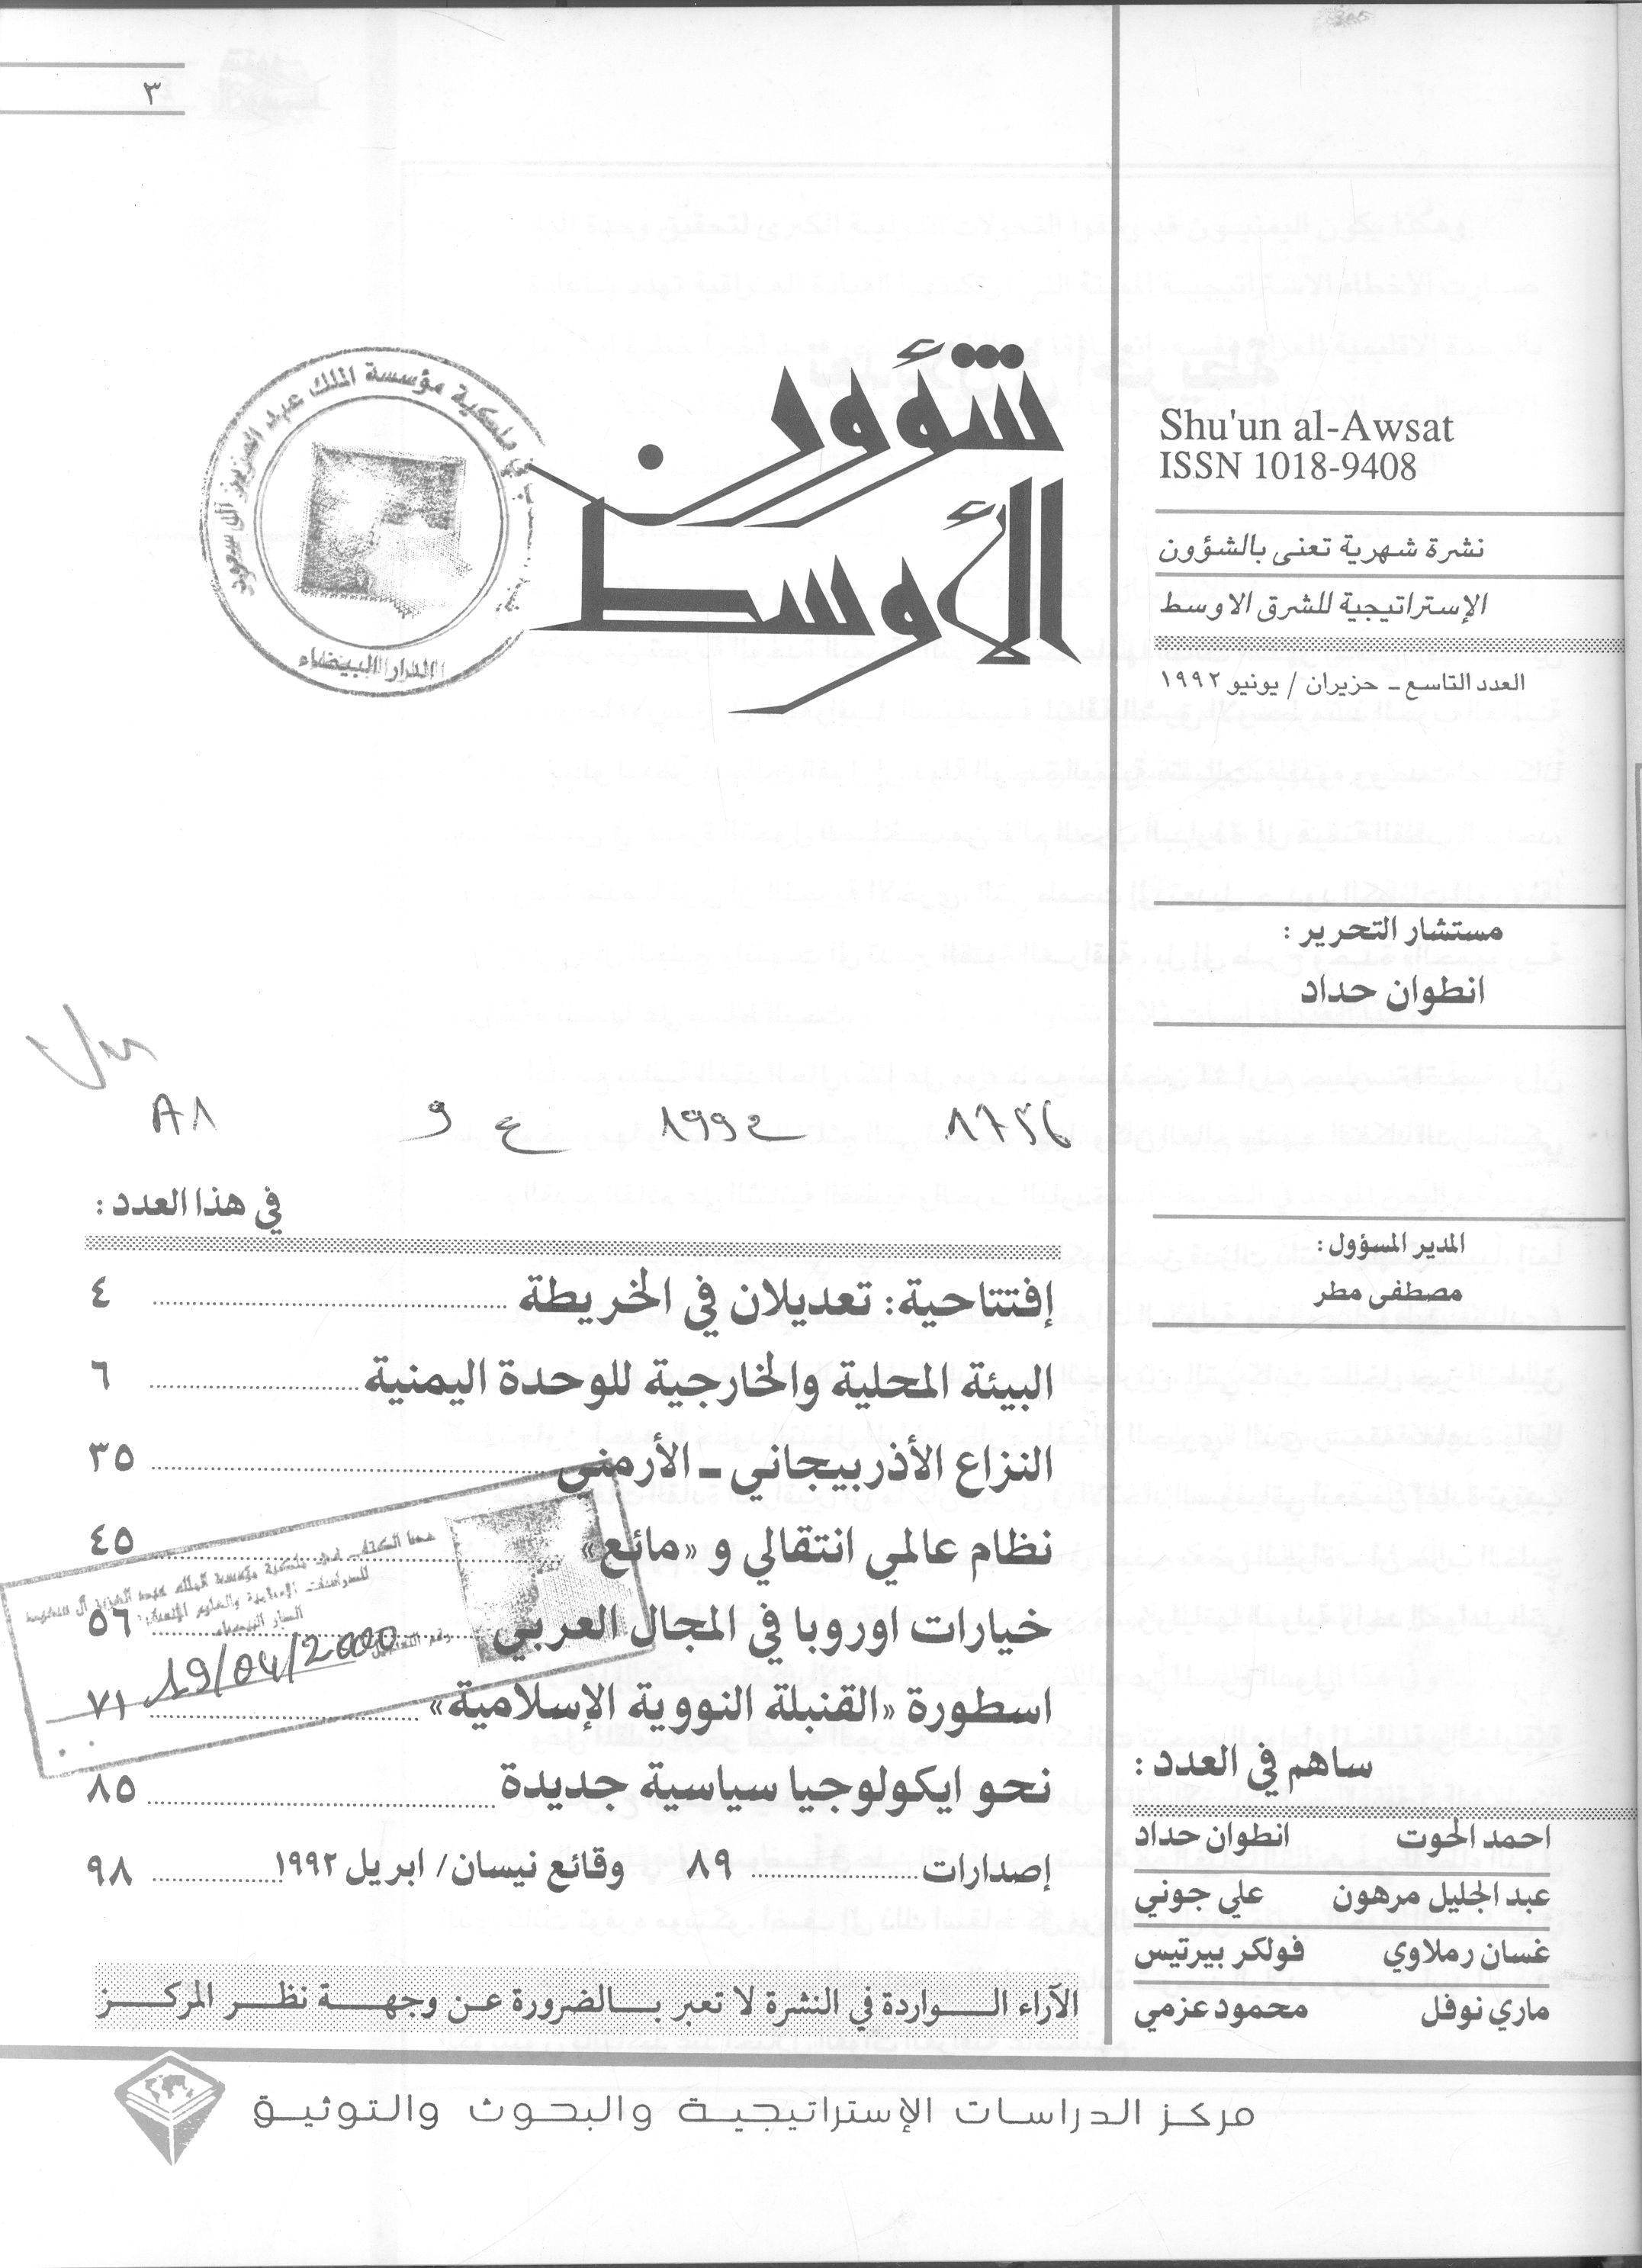 ٣
شؤون
الأوسط
Shu'un al-Awsat
ISSN 1018-9408
نشرة شهرية تعنى بالشؤون
الإستراتيجية للشرق الاوسط
العدد التاسع ـ حزيران / يونيو ١٩٩٢
مستشار التحرير :
انطوان حداد
المدير المسؤول :
مصطفى مطر
ساهم في العدد :
احمد الحوت انطوان حداد
عبد الجليل مرهون علي جوني
غسان رملاوي فولكر بيرتيس
ماري نوفل محمود عزمي
ملكية مؤسسة الملك عبد العزيز آل سعود
الدار البيضاء
في هذا العدد :
إفتتاحية: تعديلان في الخريطة ٤
البيئة المحلية والخارجية للوحدة اليمنية ٦
النزاع الأذربيجاني ـ الأرمني ٣٥
نظام عالمي انتقالي و «مائع» ٤٥
خيارات اوروبا في المجال العربي ٥٦
اسطورة «القنبلة النووية الإسلامية» ٧١
نحو ايكولوجيا سياسية جديدة ٨٥
إصدارات ٨٩ وقائع نيسان/ ابريل ١٩٩٢ ٩٨
هذا الكتاب ملكية مؤسسة الملك عبد العزيز آل سعود
للدراسات الإسلامية والعلوم الإنسانية
الدار البيضاء
19/04/2000
الآراء الواردة في النشرة لا تعبر بالضرورة عن وجهة نظر المركز
مركز الدراسات الإستراتيجية والبحوث والتوثيق